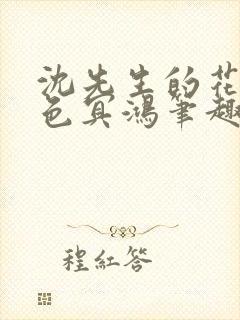 沈先生的花
色宾鸿笔趣
程红答